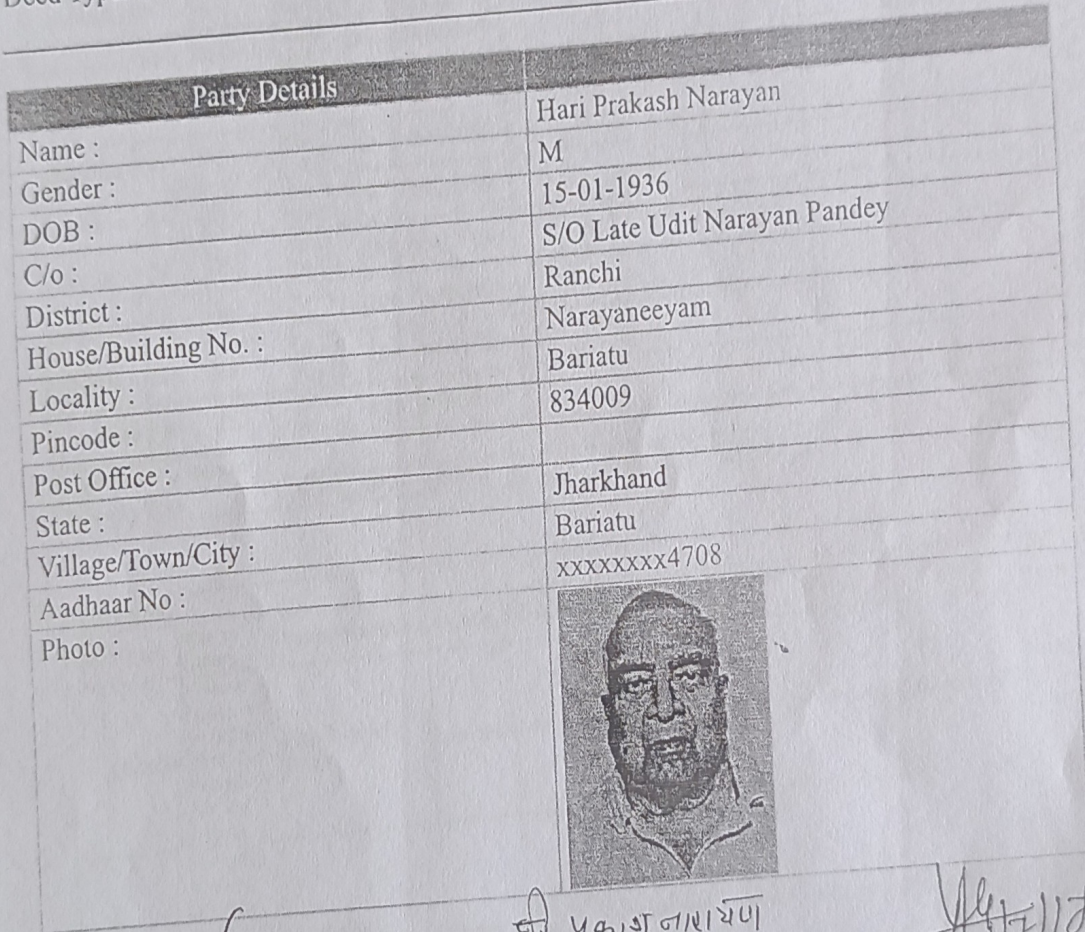 Party Details
Name : Hari Prakash Narayan
Gender : M
DOB : 15-01-1936
C/o : S/O Late Udit Narayan Pandey
District : Ranchi
House/Building No. : Narayaneeyam
Locality : Bariatu
Pincode : 834009
Post Office :
State : Jharkhand
Village/Town/City : Bariatu
Aadhaar No : xxxxxxxx4708
Photo :
प्रकाश नारायण